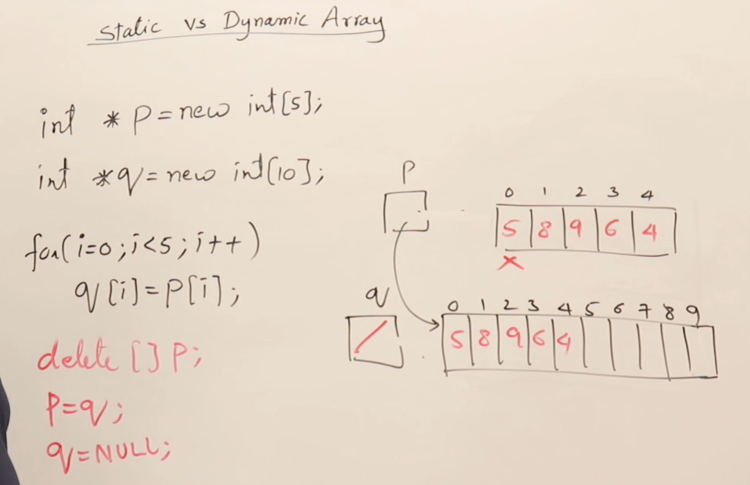 Static vs Dynamic Array
int * p = new int[5];
int *q = new int[10];
for(i=0;i<5;i++)
q[i]=p[i];
delete []p;
p=q;
q=NULL;
p
0 1 2 3 4
5 8 9 6 4
x
q
0 1 2 3 4 5 6 7 8 9
5 8 9 6 4